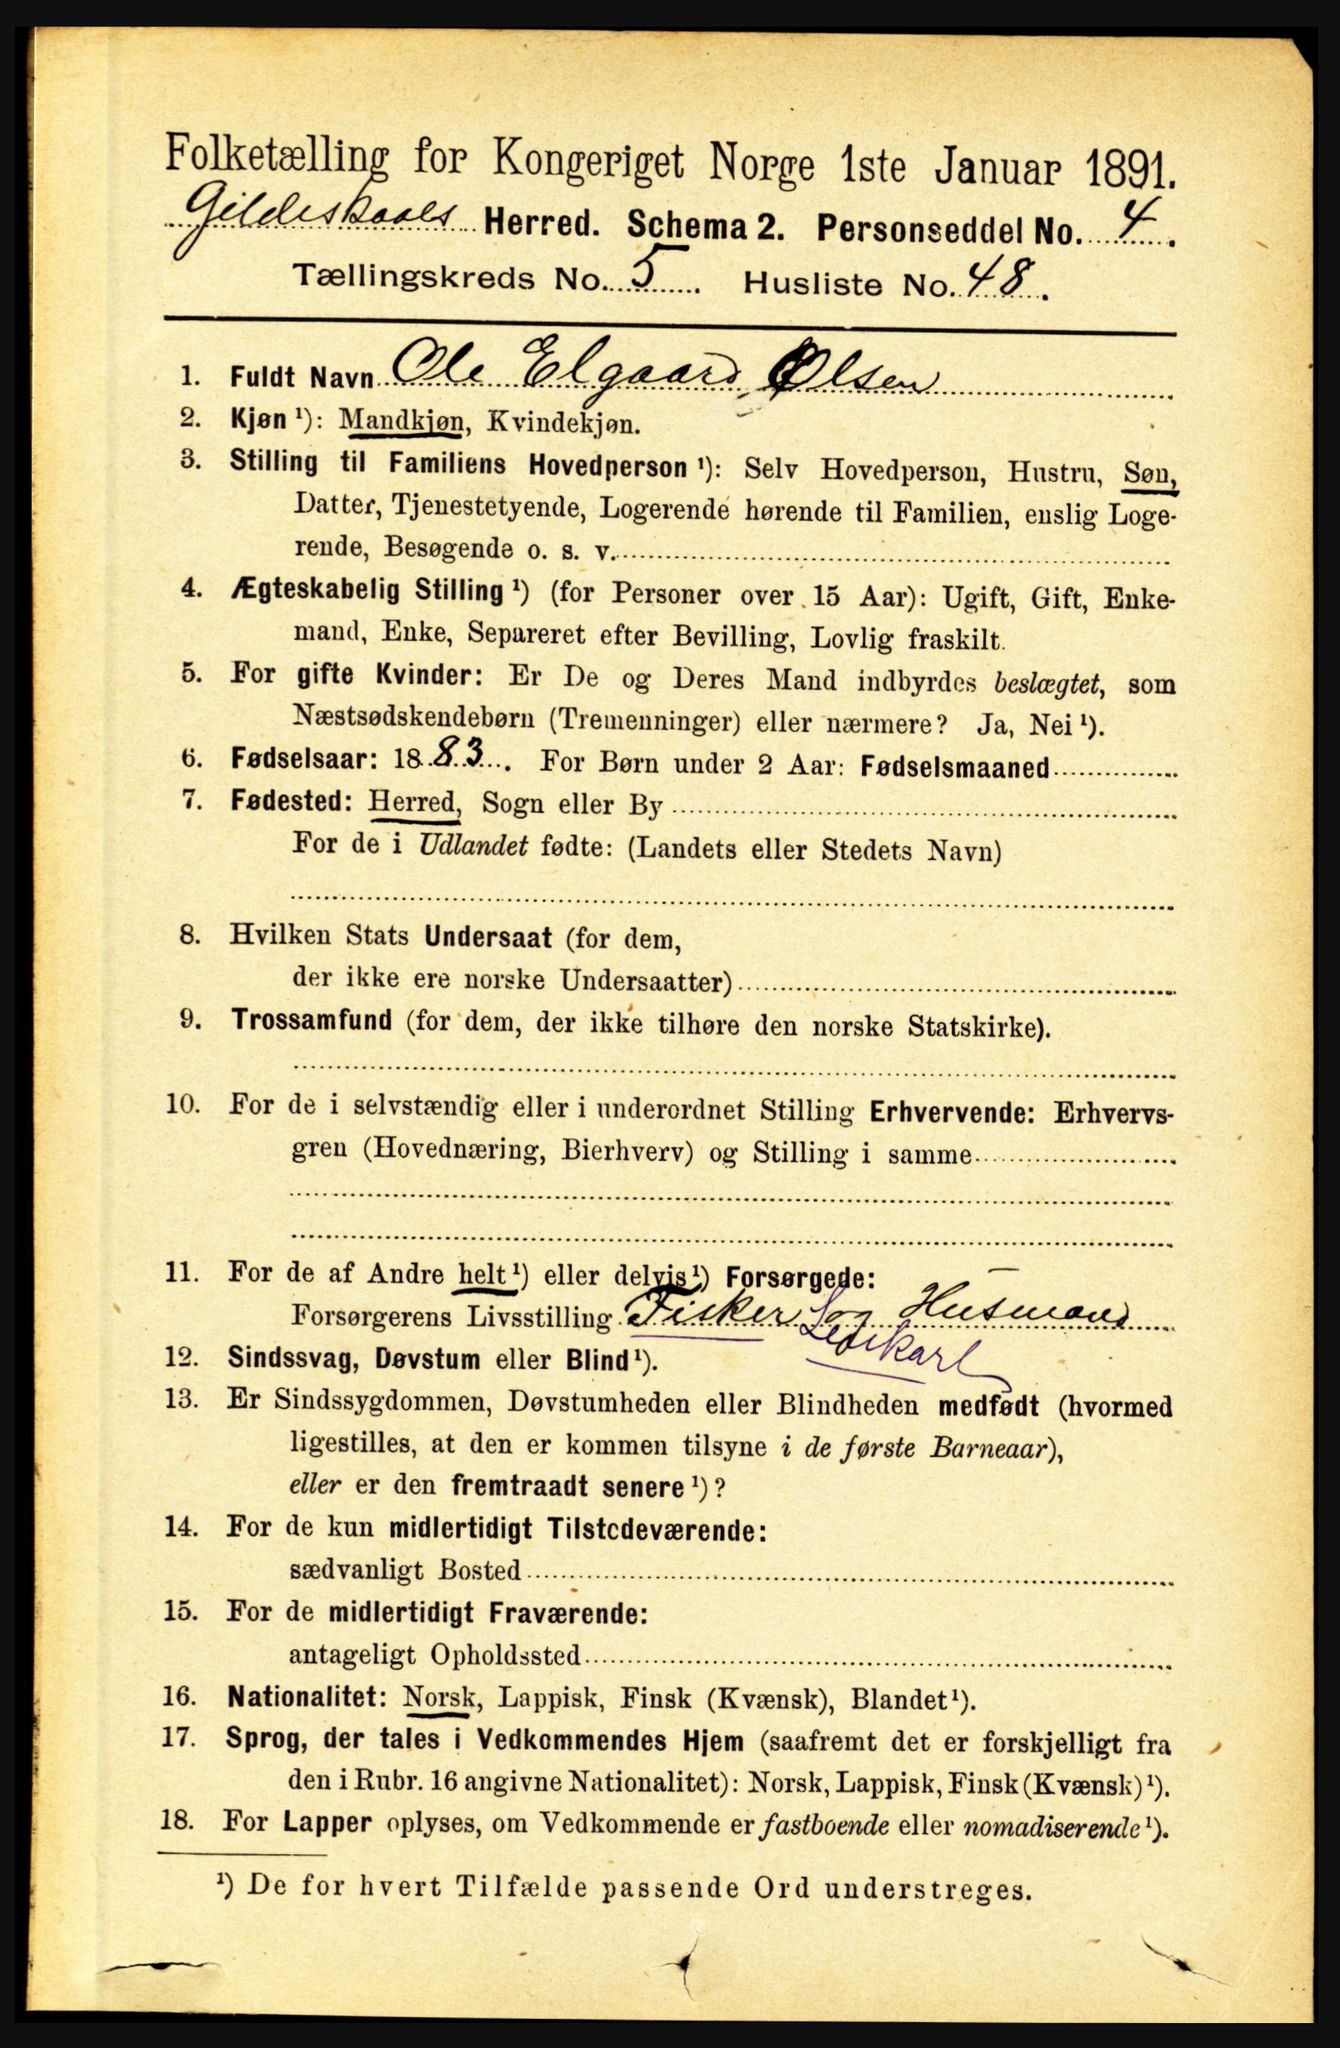 Folketælling for Kongeriget Norge 1ste Januar 1891.
Gildeskaals Herred. Schema 2. Personseddel No. 4.
Tællingskreds No. 5. Husliste No. 48.
1. Fuldt Navn Ole Elgaard Olsen
2. Kjøn ¹): Mandkjøn, Kvindekjøn.
3. Stilling til Familiens Hovedperson ¹): Selv Hovedperson, Hustru, Søn,
Datter, Tjenestetyende, Logerende hørende til Familien, enslig Loge-
rende, Besøgende o. s. v.
4. Ægteskabelig Stilling ¹) (for Personer over 15 Aar): Ugift, Gift, Enke-
mand, Enke, Separeret efter Bevilling, Lovlig fraskilt.
5. For gifte Kvinder: Er De og Deres Mand indbyrdes beslægtet, som
Næstsødskendebørn (Tremenninger) eller nærmere? Ja, Nei ¹).
6. Fødselsaar: 1883. For Børn under 2 Aar: Fødselsmaaned
7. Fødested: Herred, Sogn eller By
For de i Udlandet fødte: (Landets eller Stedets Navn)
8. Hvilken Stats Undersaat (for dem,
der ikke ere norske Undersaatter)
9. Trossamfund (for dem, der ikke tilhøre den norske Statskirke).
10. For de i selvstændig eller i underordnet Stilling Erhvervende: Erhvervs-
gren (Hovednæring, Bierhverv) og Stilling i samme
11. For de af Andre helt ¹) eller delvis ¹) Forsørgede:
Forsørgerens Livsstilling Fisker og Husmand
12. Sindssvag, Døvstum eller Blind ¹).
13. Er Sindssygdommen, Døvstumheden eller Blindheden medfødt (hvormed
ligestilles, at den er kommen tilsyne i de første Barneaar),
eller er den fremtraadt senere ¹)?
14. For de kun midlertidigt Tilstedeværende:
sædvanligt Bosted
15. For de midlertidigt Fraværende:
antageligt Opholdssted
16. Nationalitet: Norsk, Lappisk, Finsk (Kvænsk), Blandet ¹).
17. Sprog, der tales i Vedkommendes Hjem (saafremt det er forskjelligt fra
den i Rubr. 16 angivne Nationalitet): Norsk, Lappisk, Finsk (Kvænsk) ¹).
18. For Lapper oplyses, om Vedkommende er fastboende eller nomadiserende ¹).
¹) De for hvert Tilfælde passende Ord understreges.